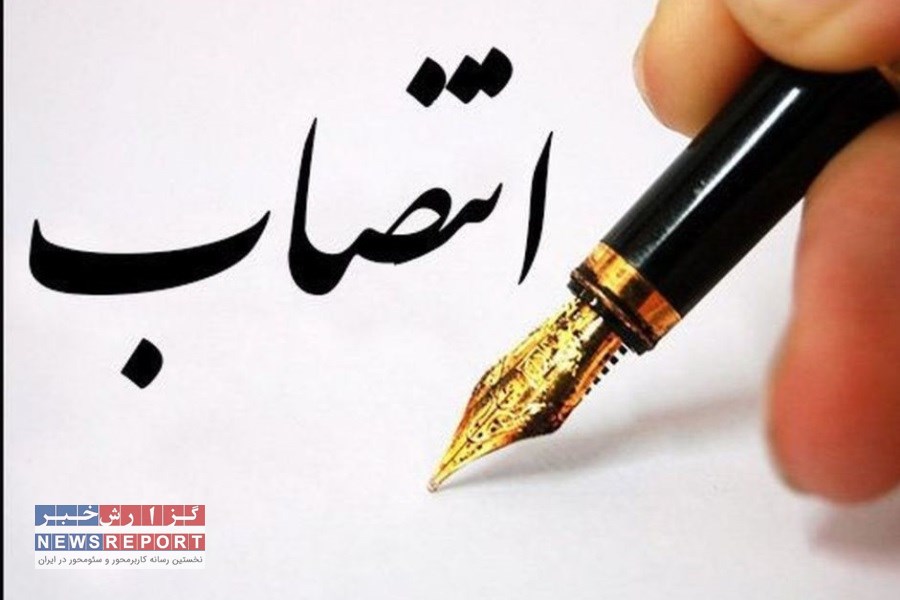 انتصاب
گزارش خبر
NEWSREPORT
نخستین رسانه کاربرمحور و سئومحور در ایران